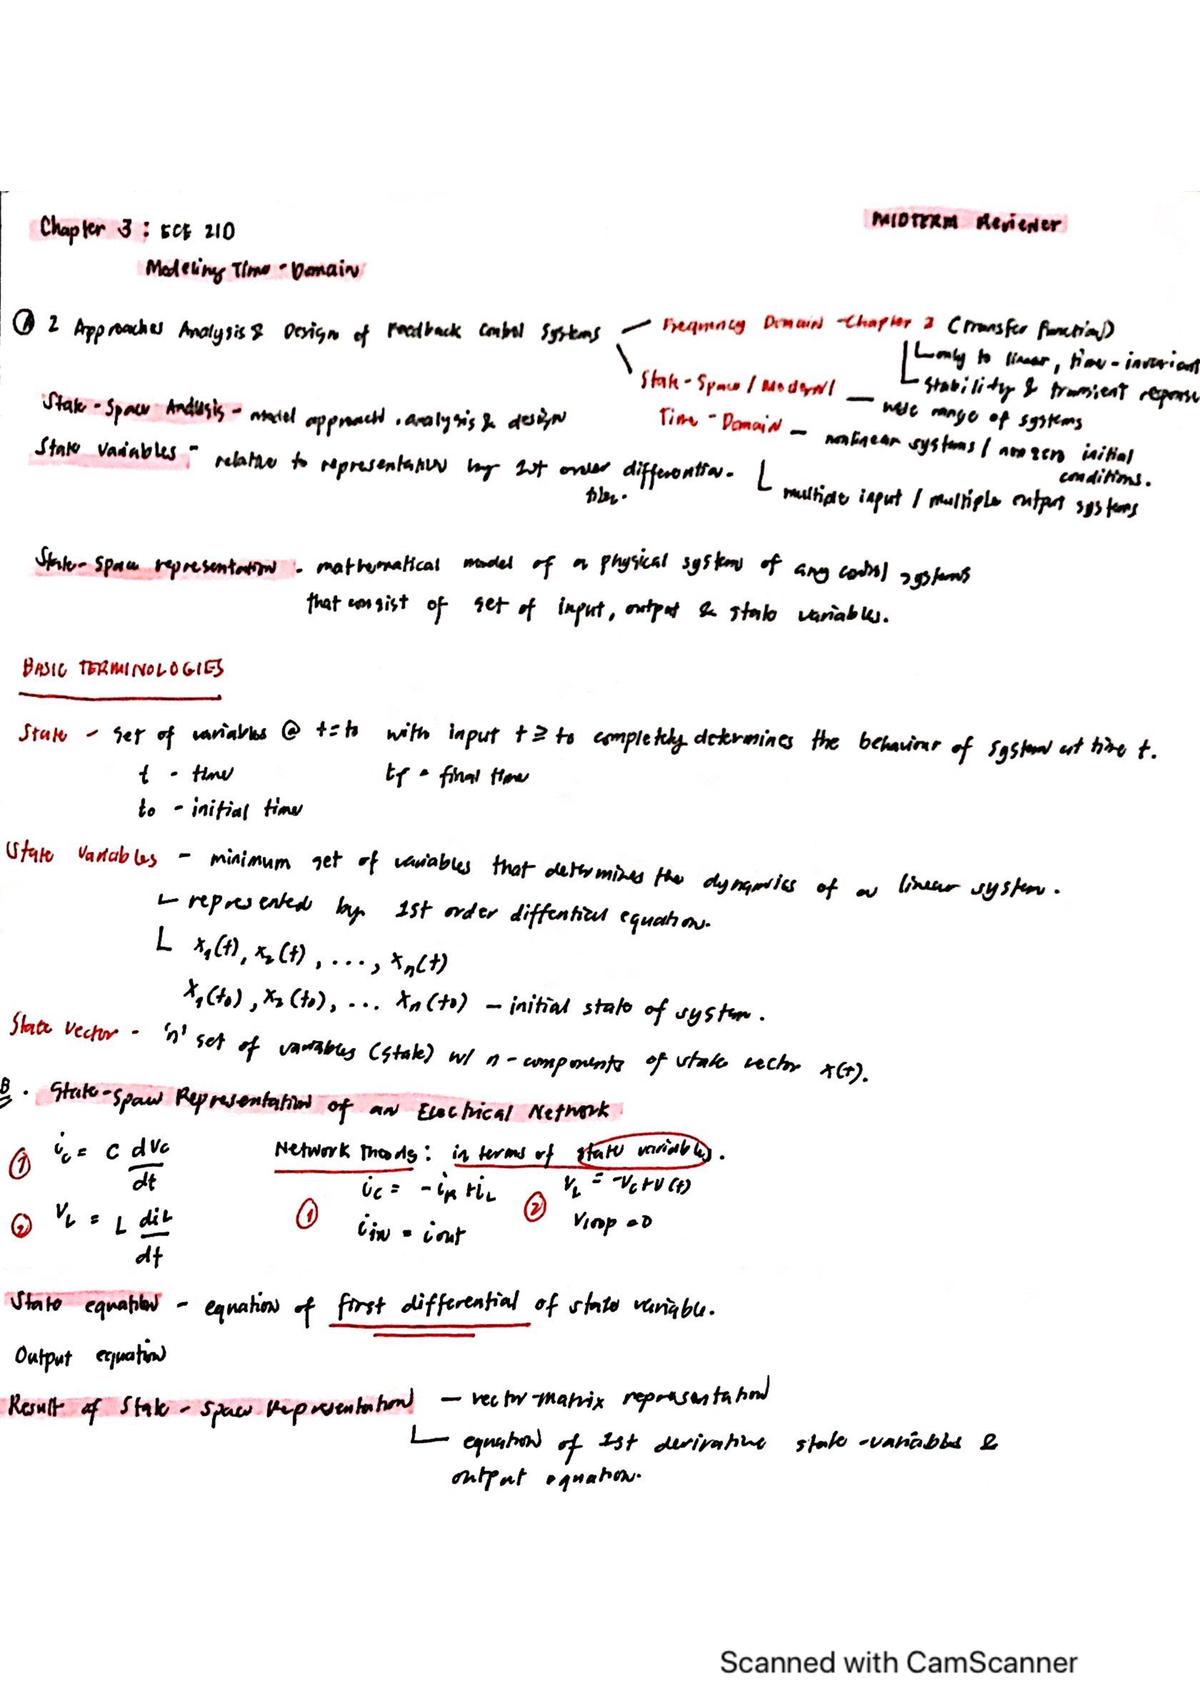 Chapter 3 : ECE 210
MIDTERM Reviewer
Modeling Time - Domain
A 2 Approaches Analysis & Design of Feedback Control Systems
Frequency Domain - Chapter 2 (Transfer function)
only to linear, time - invariant
stability & transient reponse
State - Space / Modern /
Time - Domain
wide range of systems
nonlinear systems / non zero initial
conditions.
multiple input / multiple output systems
State - Space Analysis - model approach . analysis & design
State Variables - relative to representation by 1st order differential
State - Space representation - mathematical model of a physical system of any control systems
that consist of set of input, output & state variables.
BASIC TERMINOLOGIES
State - set of variables @ t = to with input t ≥ to completely determines the behaviour of system at time t.
t - time
tf - final time
to - initial time
State Variables - minimum set of variables that determines the dynamics of a linear system.
represented by 1st order diffential equation.
x₁(t), x₂(t), ..., xₙ(t)
x₁(t₀), x₂(t₀), ... xₙ(t₀) - initial state of system.
State Vector - 'n' set of variables (state) w/ n - components of state vector x(t).
B. State - Space Representation of an Electrical Network
① ic = C dVc/dt
② VL = L diL/dt
Network Theory : in terms of state variables.
① ic = - iR + iL
iin = iout
② VL = -Vc + V(t)
Vloop = 0
State equation - equation of first differential of state variable.
Output equation
Result of State - Space Representation - vector-matrix representation
equation of 1st derivative state - variables &
output equation.
Scanned with CamScanner